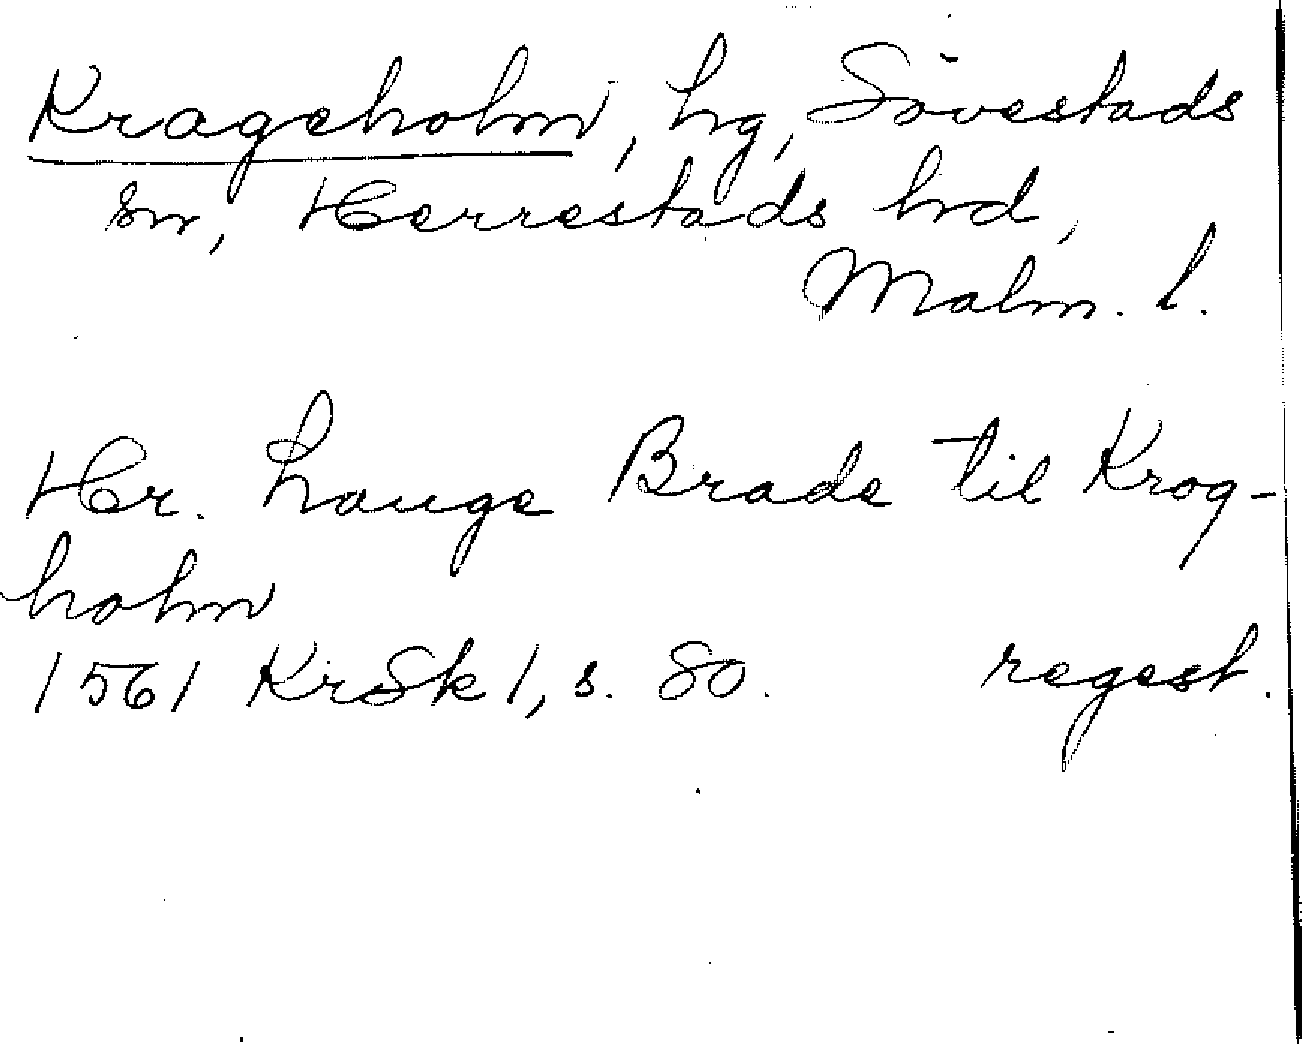 Krageholm, hg, Sövestads
sn, Herrestads hrd,
Malm. l.
Hr. Lauge Brade til Krog-
holm
1561 KrSk 1, s. 80. regest.